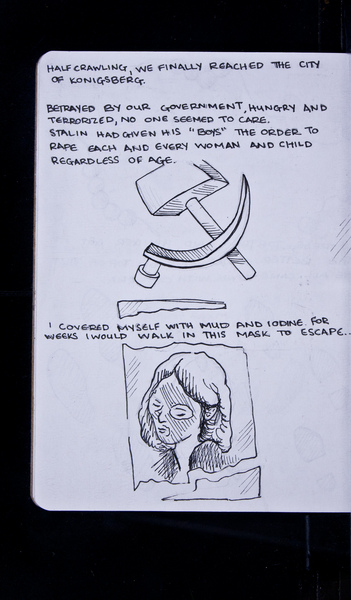 HALF CRAWLING, WE FINALLY REACHED THE CITY
OF KONIGSBERG.
BETRAYED BY OUR GOVERNMENT, HUNGRY AND
TERRORIZED, NO ONE SEEMED TO CARE.
STALIN HAD GIVEN HIS "BOYS" THE ORDER TO
RAPE EACH AND EVERY WOMAN AND CHILD
REGARDLESS OF AGE.
I COVERED MYSELF WITH MUD AND IODINE FOR
WEEKS I WOULD WALK IN THIS MASK TO ESCAPE...